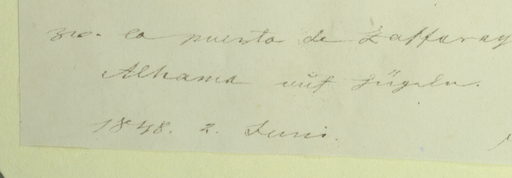 zw. la puerta de Zaffaray
Alhama auf Hügeln.
1848. 2. Juni.